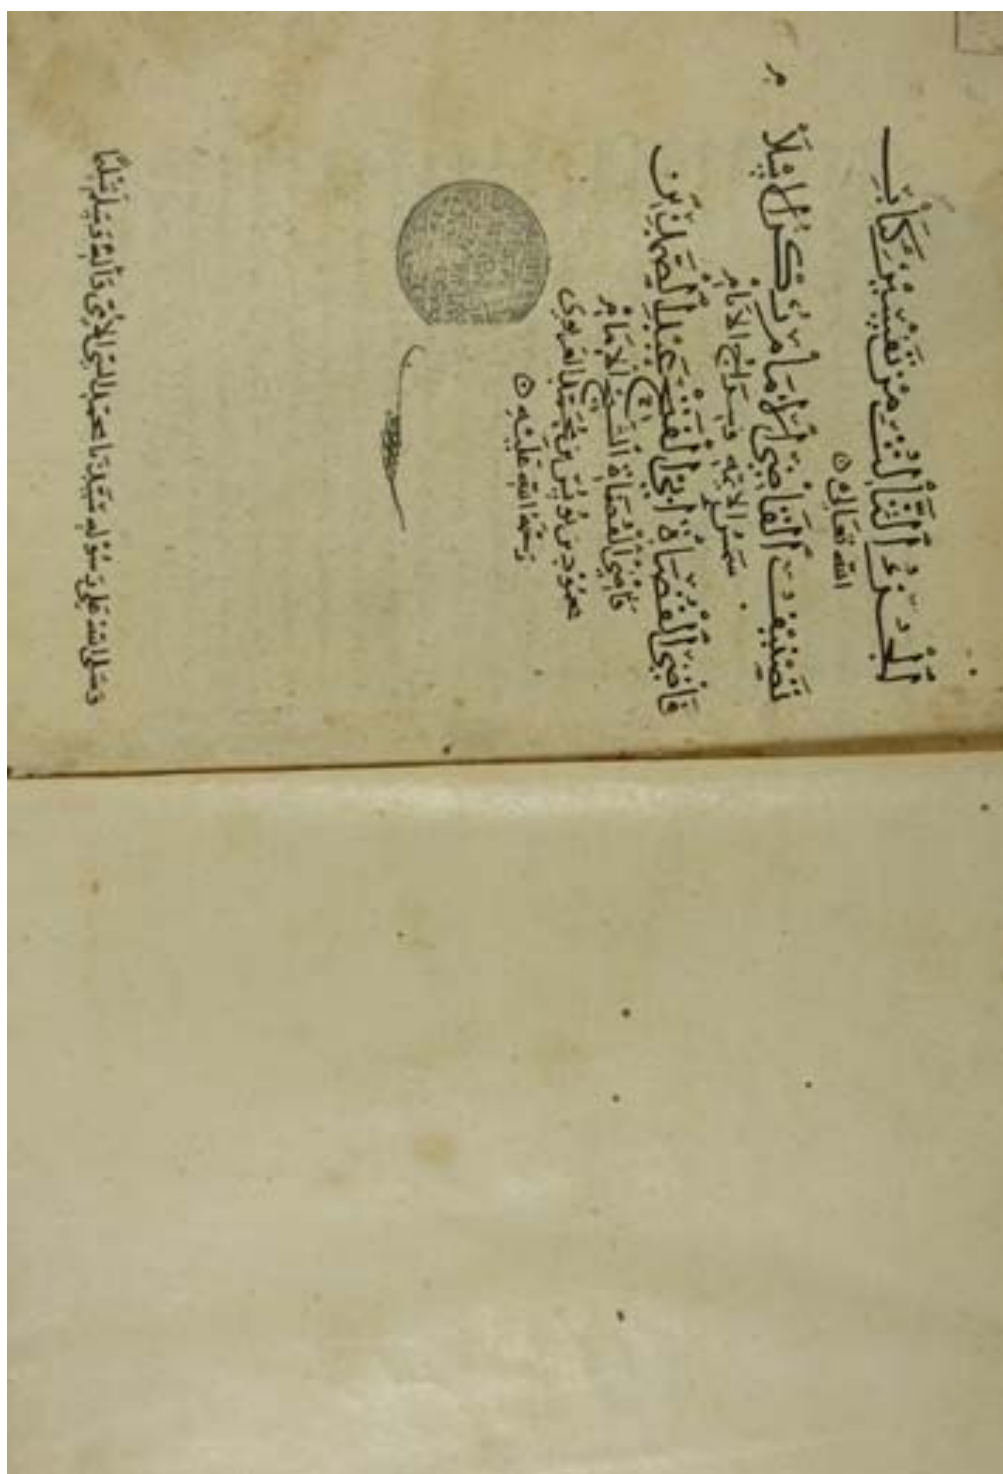 الجزء الثالث من تفسير كتاب
الله تعالى
تصنيف القاضي الامام ركن الاسلام
شمس الايمه وسراج الامام
قاضي القضاة ابي الفتح عبد الصمد بن
قاضي القضاة الشيخ الامام
محمود بن يونس بن محمد الغزنوي
رحمة الله عليه
وصلى الله على رسوله سيدنا محمد النبي الامي وآله وسلم تسليما